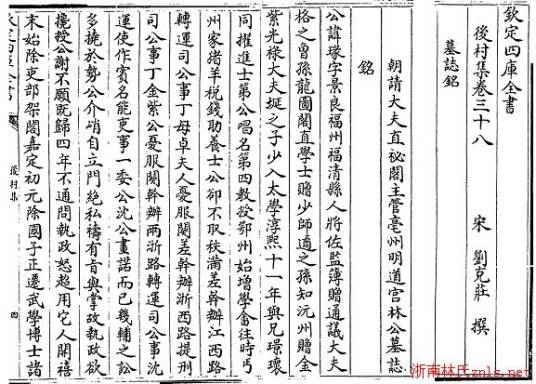 欽定四庫全書
後村集卷三十八
宋 劉克莊 撰
墓誌銘
朝請大夫直祕閣主管亳州明道宮林公墓誌
銘
公諱瑑字景良福州福清縣人將佐監簿贈通議大夫
格之曽孫龍圖閣直學士贈少師遹之孫知沅州贈金
紫光祿大夫埏之子少入太學淳熙十一年與兄璟環
同擢進士第公唱名第四教授鄂州始增學舍徃時丐
州家猪羊稅錢助養士公卻不取秩滿差幹辦江西路
轉運司公事丁母卓夫人憂服闋差幹辦浙西路提刑
司公事丁金紫公憂服闋幹辦兩浙路轉運司公事沈
運使作賓名能吏事一委公沈公畫諾而已畿輔之訟
多撓於勢公介峭自立門絶私禱有旨與掌故執政欲
攙授公謝不願既歸四年不通問執政怒超用它人開禧
末始除吏部架閣嘉定初元除國子正遷武學博士諸
欽定四庫全書
後村集
四
浙南林氏znls.net